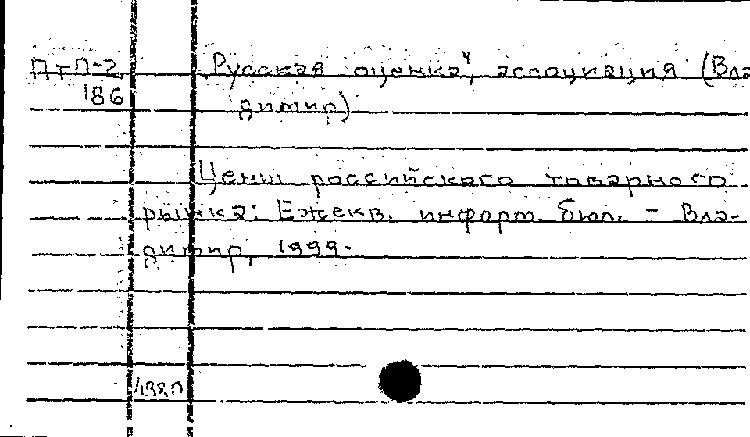 ПтП-2 Русская оценка", ассоциация (Вла
186 димир)
Цены российского товарного
рынка: Ежекв. информ. бюл. - Вла-
димир, 1999-